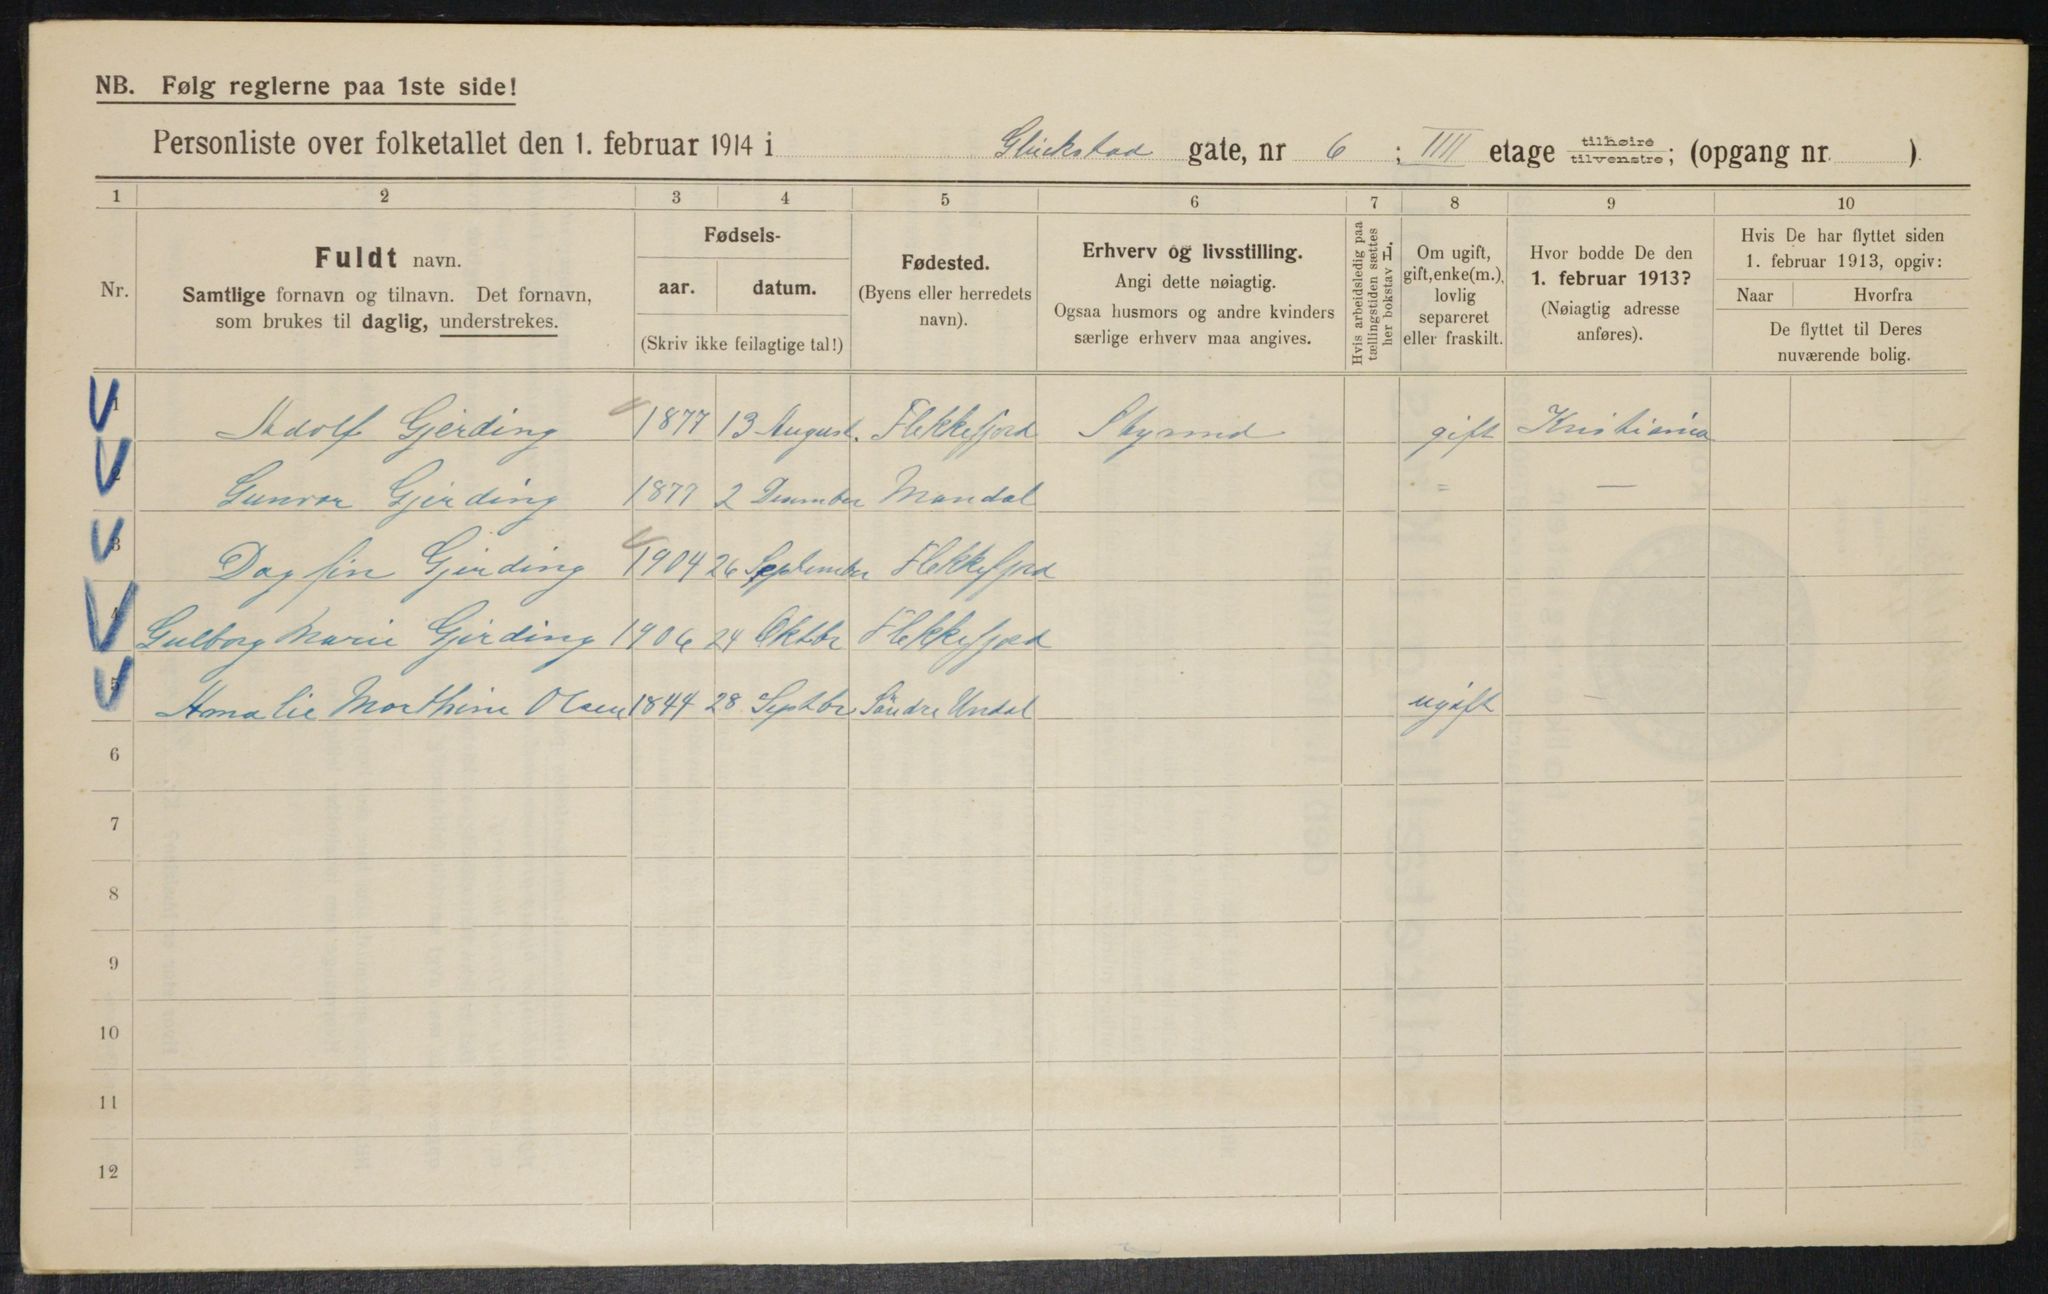 NB. Følg reglerne paa 1ste side!
Personliste over folketallet den 1. februar 1914 i Glückstad gate, nr 6; IIII etage tilhøire tilvenstre; (opgang nr. ).
1 2 3 4 5 6 7 8 9 10
Nr.
Fuldt navn.
Samtlige fornavn og tilnavn. Det fornavn,
som brukes til daglig, understrekes.
Fødsels-
aar. datum.
(Skriv ikke feilagtige tal!)
Fødested.
(Byens eller herredets
navn).
Erhverv og livsstilling.
Angi dette nøiagtig.
Ogsaa husmors og andre kvinders
særlige erhverv maa angives.
Hvis arbeidsledig paa
tællingstiden sættes
her bokstav L.
Om ugift,
gift, enke(m.),
lovlig
separeret
eller fraskilt.
Hvor bodde De den
1. februar 1913?
(Nøiagtig adresse
anføres).
Hvis De har flyttet siden
1. februar 1913, opgiv:
Naar Hvorfra
De flyttet til Deres
nuværende bolig.
1 Adolf Gjerding 1877 13 August. Flekkefjord Styrmd gift Kristiania
2 Gunvor Gjerding 1877 2 Desember Mandal " —
3 Dagfin Gjerding 1904 26 September Flekkefjord
4 Gulborg Marie Gjerding 1906 24 Oktbr Flekkefjord
5 Amalie Morthine Olsen 1844 28 Septbr Söndre Undal ugift -
6
7
8
9
10
11
12